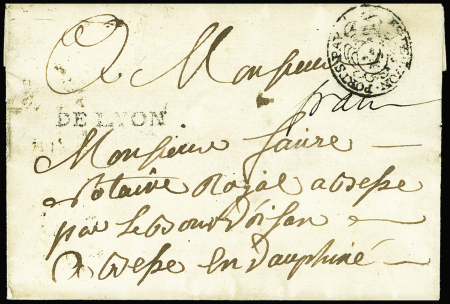 A Monsieur
franc
DE LYON
Monsieur faure
Notaire Royal a Besse
par Le Bourd'oisan
A Besse en Dauphiné